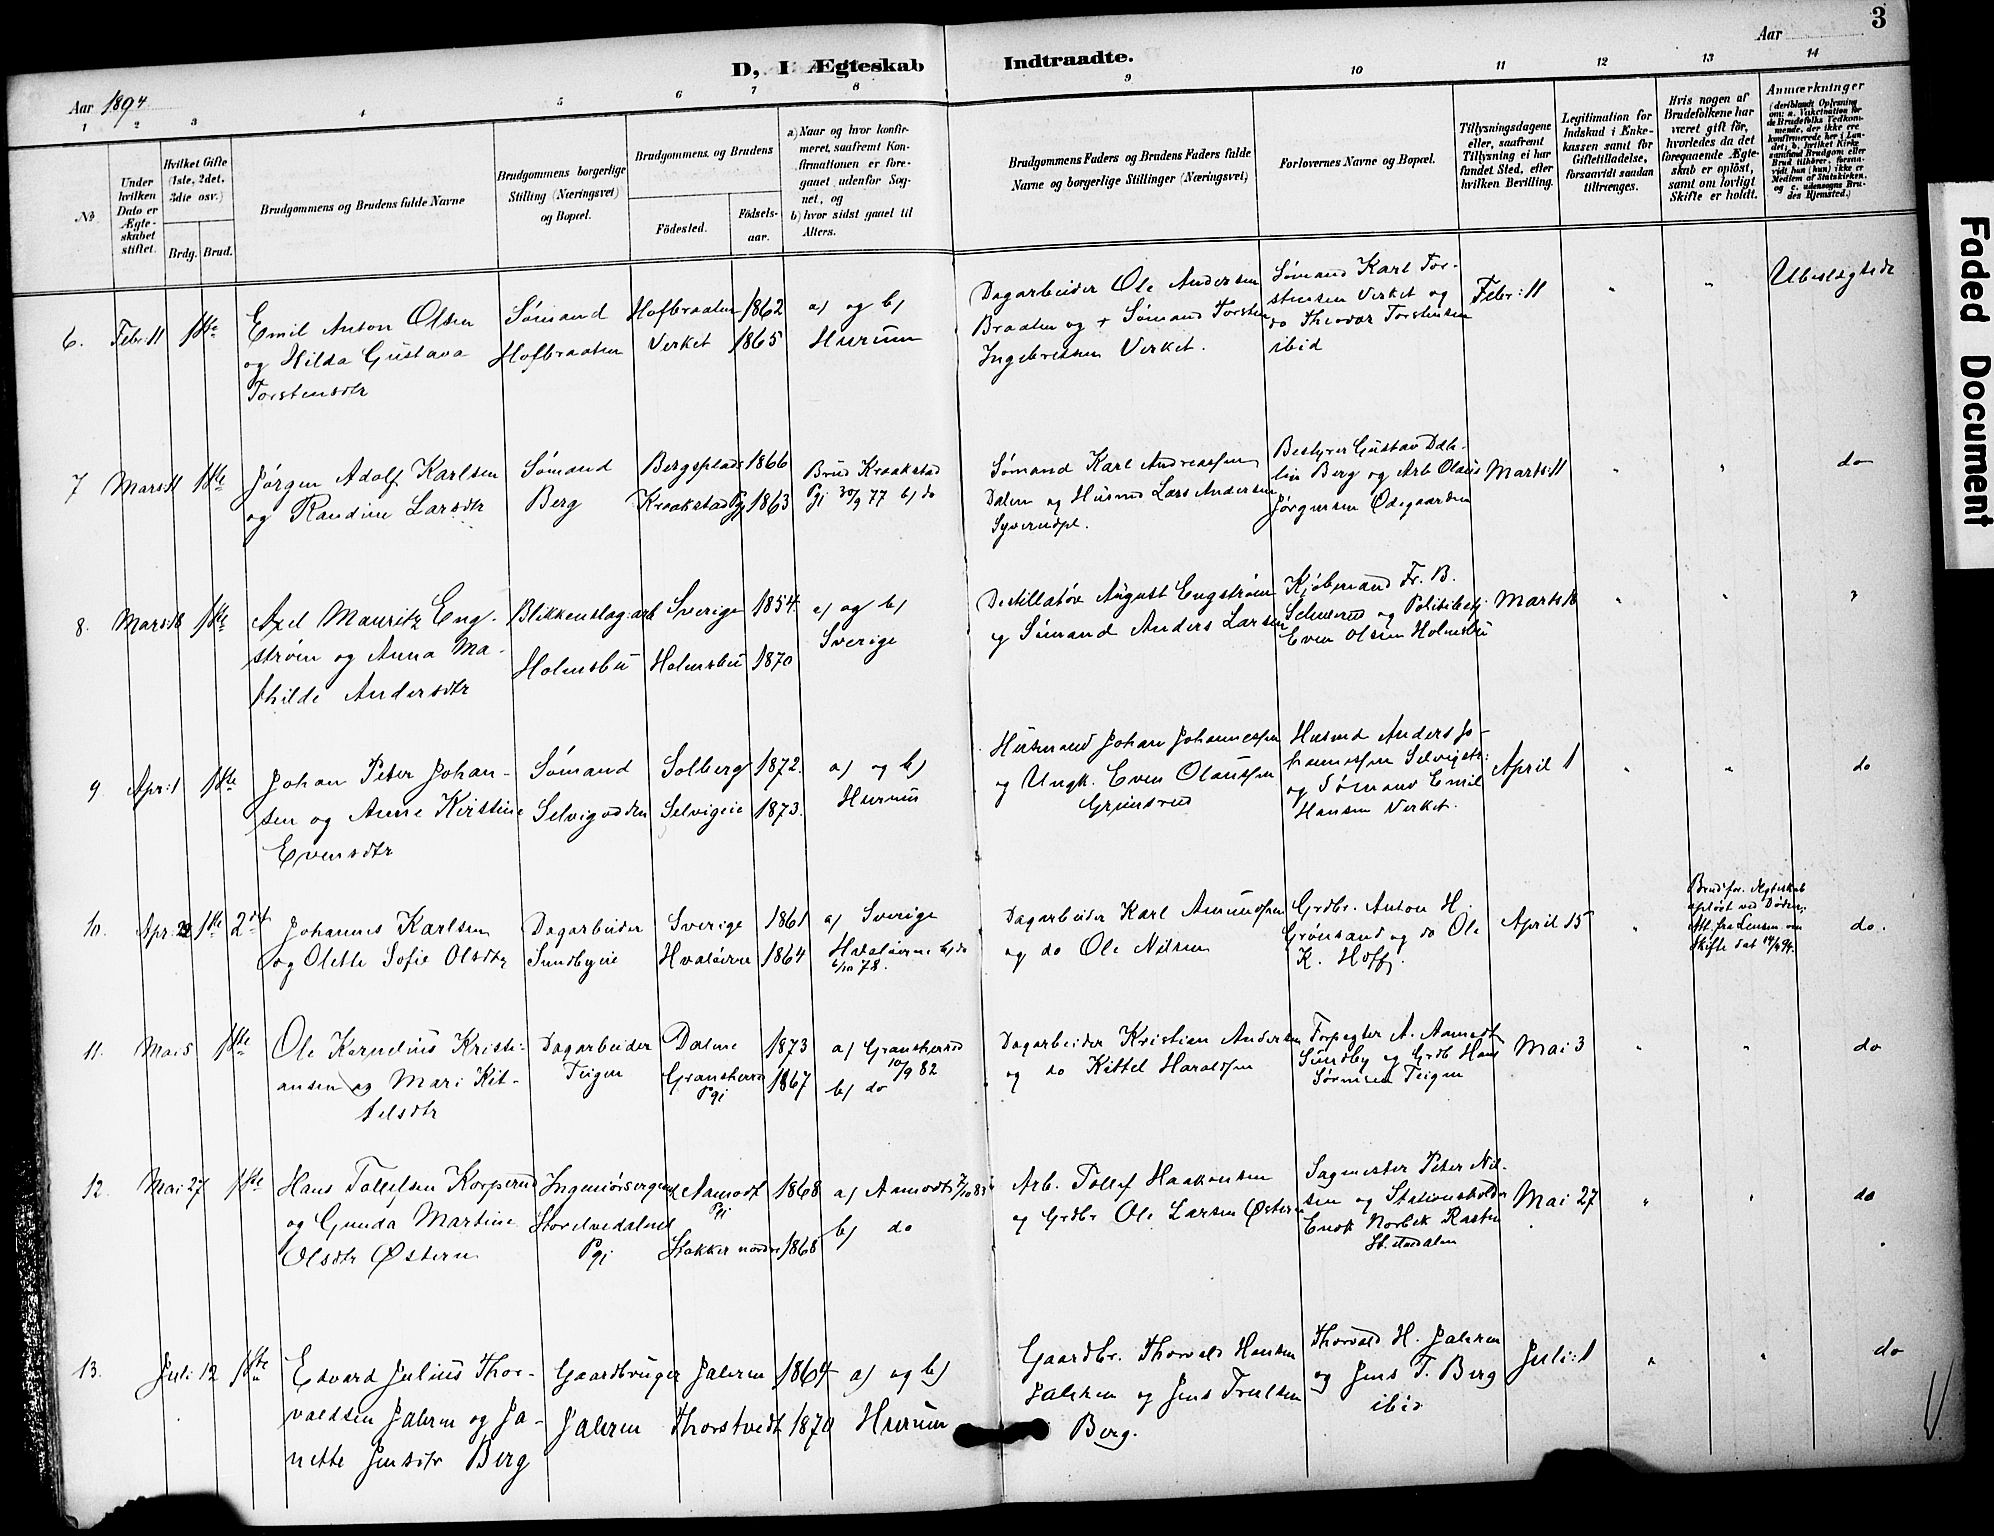 Aar
3
D, I Ægteskab Indtraadte.
Aar 1894
1 2 3 4 5 6 7 8 9 10 11 12 13 14
No.
Under hvilken Dato er Ægteskabet stiftet.
Hvilket Gifte (1ste, 2det, 3die osv.)
Brdg. Brud.
Brudgommens og Brudens fulde Navne
Brudgommens borgerlige Stilling (Næringsvei) og Bopæl.
Brudgommens og Brudens
Fødested. Fødselsaar.
a) Naar og hvor konfirmeret, saafremt Konfirmationen er foregaaet udenfor Sognet, og
b) hvor sidst gaaet til Alters.
Brudgommens Faders og Brudens Faders fulde Navne og borgerlige Stillinger (Næringsvei)
Forlovernes Navne og Bopæl.
Tillysningsdagene eller, saafremt Tillysning ei har fundet Sted, efter hvilken Bevilling.
Legitimation for Indskud i Enkekassen samt for Giftetilladelse, forsaavidt saadan tiltrenges.
Hvis nogen af Brudefolkene har været gift før, hvorledes da det foregaaende Ægteskab er opløst, samt om lovligt Skifte er holdt.
Anmærkninger
(deriblandt Oplysning om: a. Vaksination for de Brudefolks Vedkommende, der ikke ere konfirmerede her i Landet; b. hvilket Kirkesamfund Brudgom eller Brud tilhører, forsaavidt han (hun) ikke er Medlem af Statskirken, og c. udensogns Brudes Hjemsted.)
6. Febr: 11 1ste
Emil Anton Olsen
og Hilda Gustava
Torstensdtr
Sømand
Hofbraaten
Hofbraaten 1862
Verket 1865
a) og b)
Hurum
Dagarbeider Ole Andersen
Braaten og + Sømand Torsten
Ingebretsen Verket.
Sømand Karl Tor-
stensen Verket og
do Theodor Torstensen
ibid
Febr: 11 " "
Ubeslægtede
7 Mars: 11 1ste
Jørgen Adolf Karlsen
og Randine Larsdtr
Sømand
Berg
Bergsplads 1866
Kraakstad Pgj 1863
Brud Kraakstad
Pgj 30/9 77 b) do
Sømand Karl Andreassen
Dalen og Husmd Lars Andersen
Syverudpl.
Bestyrer Gustav Dah-
lin Berg og Arb Olaus
Jørgensen Ødegaarden
Marts: 11 " "
do
8. Mars: 18 1ste
Axel Mauritz Eng-
strøm og Anna Ma-
thilde Andersdtr
Blikkenslag: arb
Holmsbu
Sverige 1854
Holmsbu 1870
a) og b)
Sverige
Destillatør August Engstrøm
og Sømand Anders Larsen
Kjøbmand Fr. B.
og Politibetj.
Even Olsen Holmsbu
Marts 18 " " "
9 Apr: 1 1ste
Johan Peter Johan-
sen og Anne Kirstine
Evensdtr
Sømand
Selvigodden
Solberg 1872.
Selvigeie 1873.
a) og b)
Hurum
Husmand Johan Johannessen
og Ungk. Even Olaussen
Grimsrud
Husmd Anders Jo-
hannessen Selvigstr:
og Sømand Emil
Hansen Verket.
April 1 " "
do
10. Apr: 22 1ste 2det
Johannes Karlsen
og Olette Sofie Olsdtr
Dagarbeider
Sundbyeie
Sverige 1861
Hvaløerne 1864
a) Sverige
Hvaløerne b) do
6/10 78.
Dagarbeider Karl Amundsen
og do Ole Nilsen
Grdbr. Anton H.
Grønsand og do Ole
K. Hoff.
April 15 "
Brud for. Ægteskab
opløst ved Døden,
Att. fra Lensm. om
Skifte dat 14/4 94.
do.
11. Mai 5 1ste
Ole Kornelius Kristi-
ansen og Mari Kit-
telsdtr
Dagarbeider
Teigen
Dalene 1873
Gransherred Pgj 1867
a) Gransherred
10/9 82
b) do
Dagarbeider Kristian Andersen
og do Kittel Haraldsen
Forpagter A. Aamodt
Sundby og Grdb Hans
Sørensen Teigen
Mai 3 " "
do
12. Mai 27 1ste
Hans Tollefsen Korperud
og Gunda Martine
Olsdtr Østern
Storelvedalens
Pgj
Aamodt Pgj 1868
Stokker nordre 1868
a) Aamodts
b) do
Arb. Tollef Haakonsen
og Grdbr Ole Larsen Østern
Sagmester Peter Nil-
sen og Stationsholder
Enok Norbek Rasten
St. elvedalen
Mai 27 " "
do
13. Juli 12 1ste
Edvard Julius Thor-
valdsen Jahren og Ja-
nette Jensdtr Berg
Gaardbruger
Jahren
Jahren 1864
Thorstvedt 1870
a) og b)
Hurum
Gaardbr. Thorvald Hansen
Jahren og Jens Trulsen
Berg.
Thorvald H. Jahren
og Jens T. Berg
ibid
Juli: 1 " "
do
Faded Document